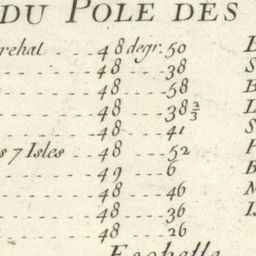 DU POLE DES
rehat 48 degr. 50
48 38
48 58
48 38 2/3
48 41
s 7 Isles 48 52
49 6
48 46
48 36
48 26